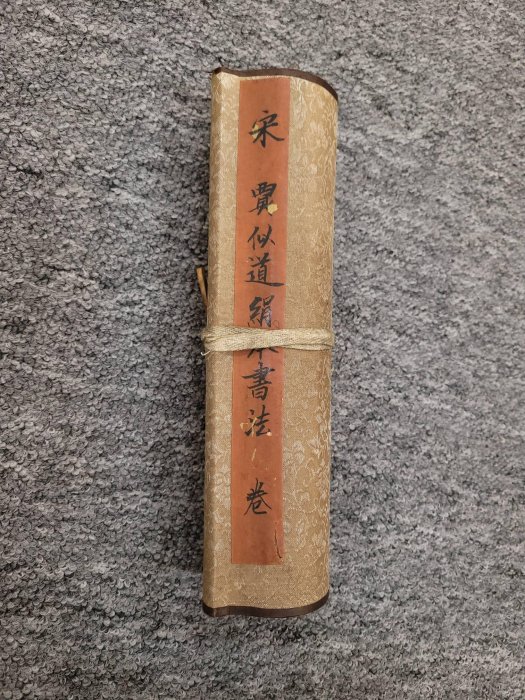 宋 賈似道絹本書法 卷